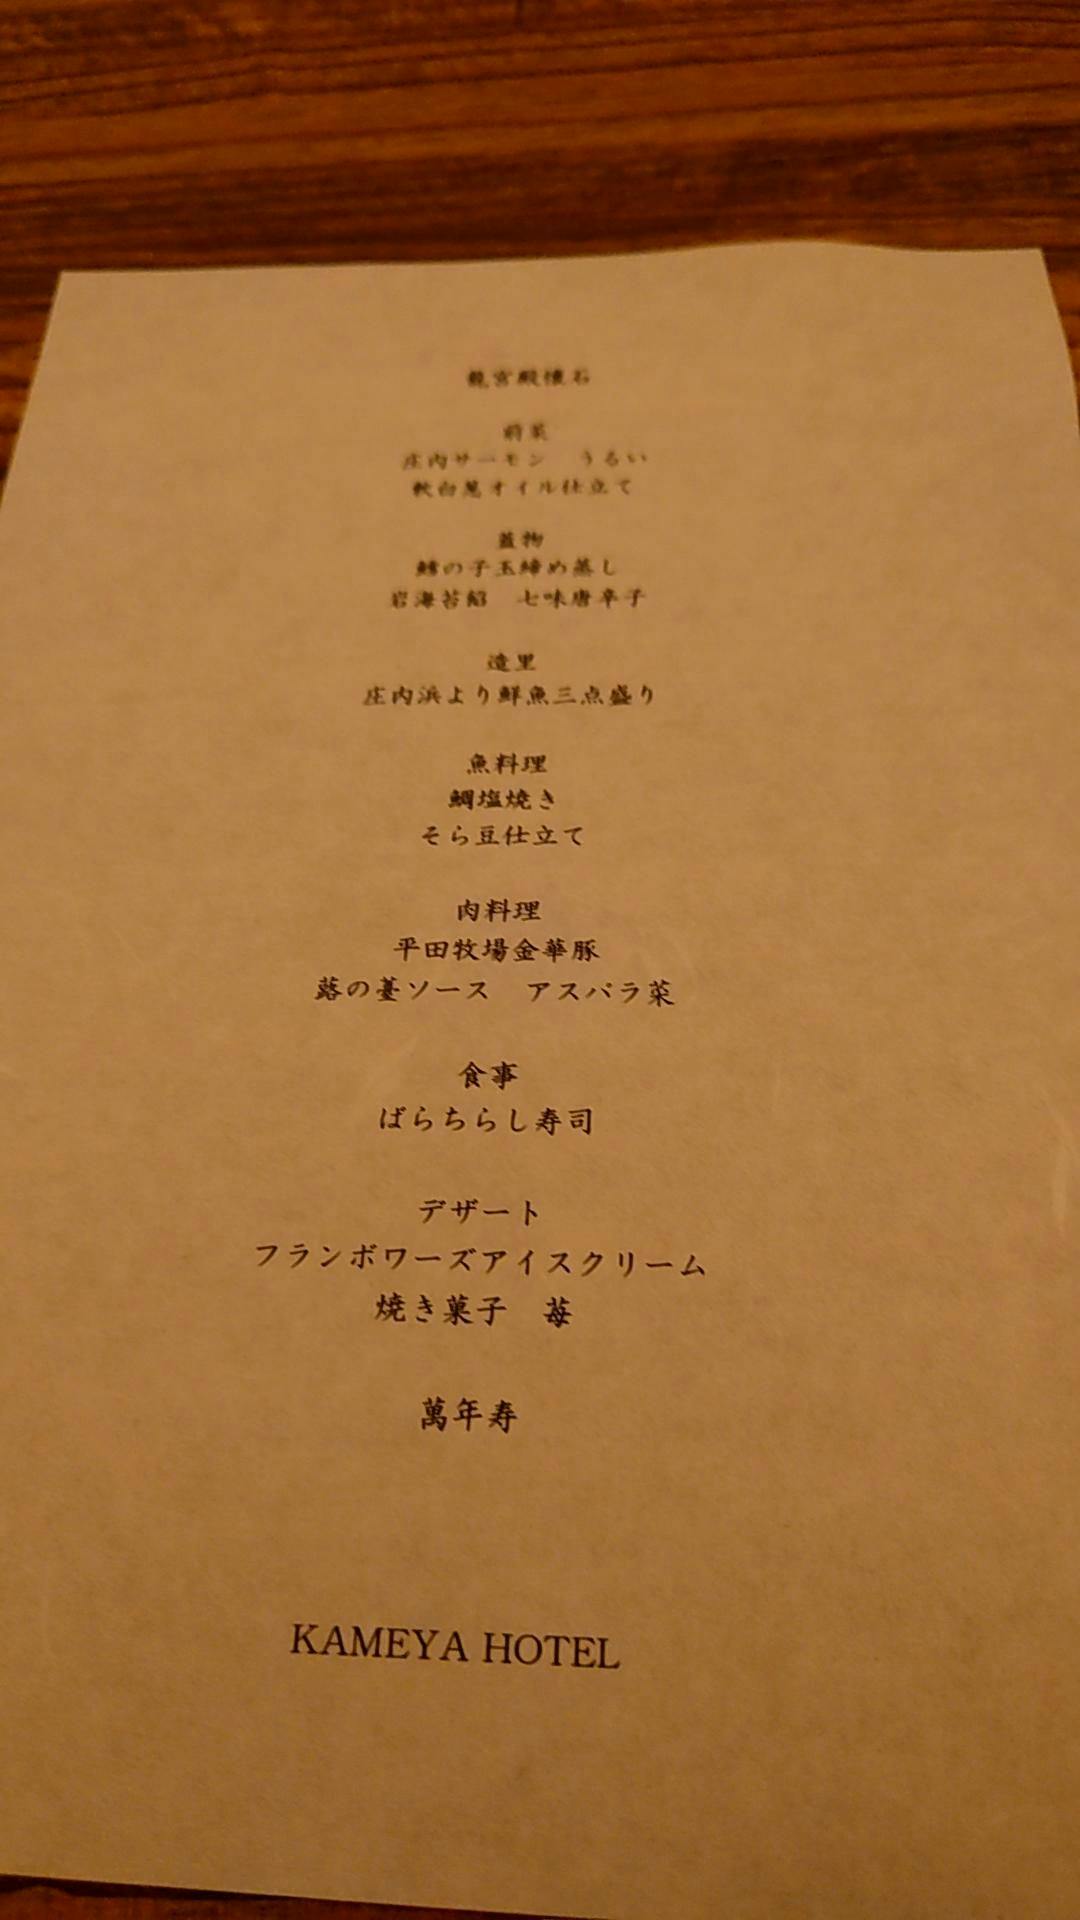 龍宮殿懐石
前菜
庄内サーモン　うるい
軟白葱オイル仕立て
蓋物
鱈の子玉締め蒸し
岩海苔餡　七味唐辛子
造里
庄内浜より鮮魚三点盛り
魚料理
鯛塩焼き
そら豆仕立て
肉料理
平田牧場金華豚
蕗の薹ソース　アスパラ菜
食事
ばらちらし寿司
デザート
フランボワーズアイスクリーム
焼き菓子　苺
萬年寿
KAMEYA HOTEL